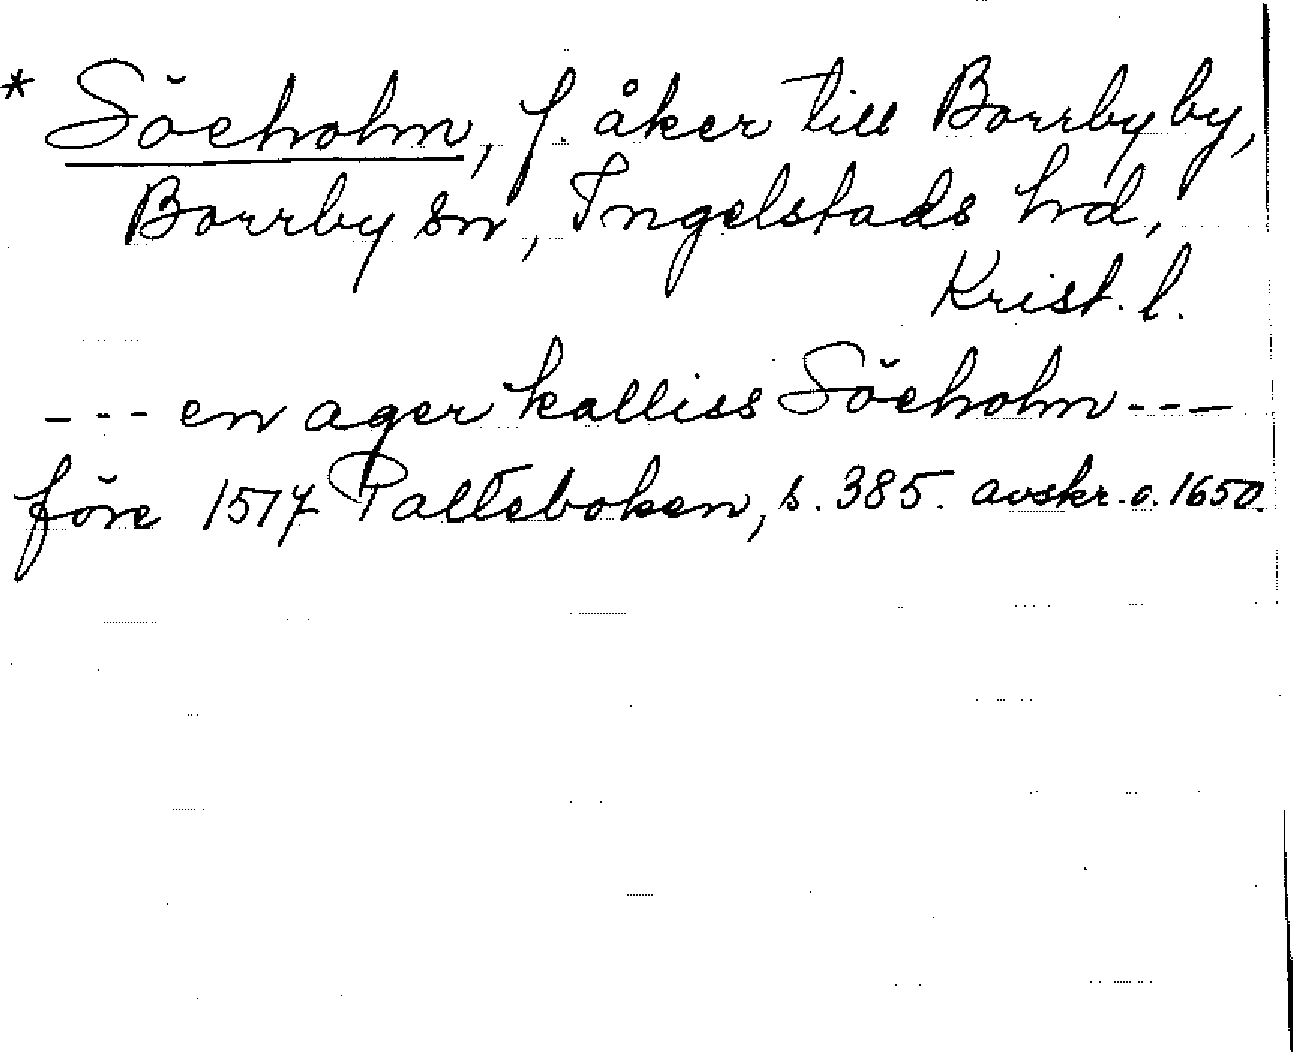 * Söeholm, f. åker till Borrby by,
Borrby sn, Ingelstads hd,
Krist. l.
--- en ager kalliss Söeholm ---
före 1517 Palteboken, s. 385. avskr. o. 1650.